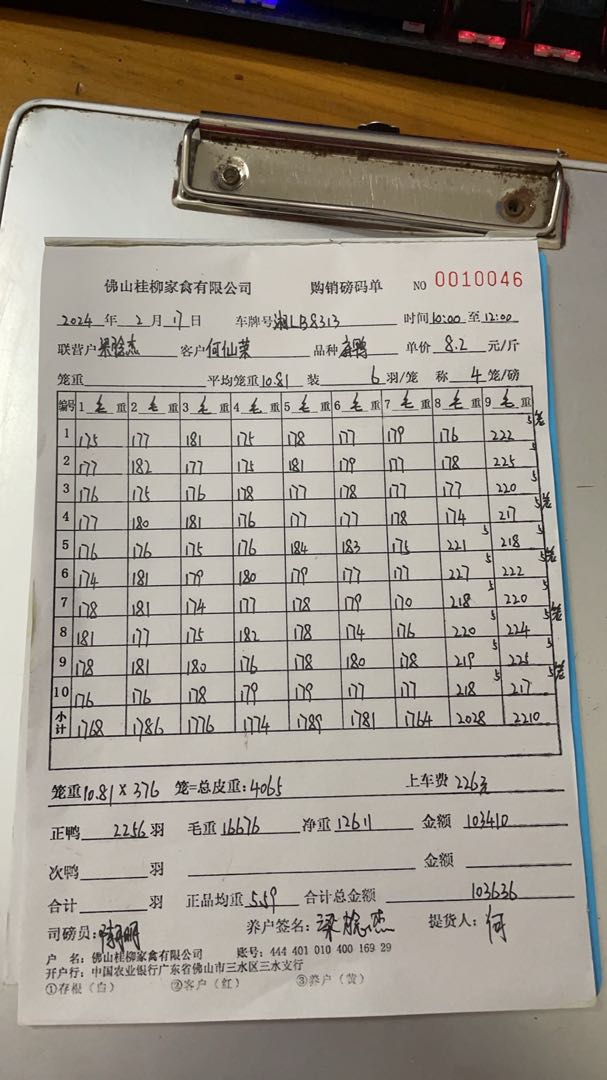 佛山桂柳家禽有限公司 购销磅码单 NO 0010046
2024 年 2 月 17 日 车牌号湘LB8313 时间10:00 至12:00
联营户梁 杰 客户何仙荣 品种麻鸭 单价 8.2 元/斤
笼重 平均笼重10.81 装 6 羽/笼 称 4 笼/磅
编号 1 毛 重 2 毛 重 3 毛 重 4 毛 重 5 毛 重 6 毛 重 7 毛 重 8 毛 重 9 毛 重
1 175 177 181 175 178 177 179 176 222 5笼
2 177 182 177 175 181 179 177 178 225 5
3 176 175 176 178 177 178 177 177 220 5
4 177 180 181 176 177 177 178 174 217 5笼
5 176 176 175 176 184 183 175 221 5 218 5
6 174 181 179 180 179 177 177 227 5 222 5笼
7 178 181 174 177 178 179 170 218 5 220 5
8 181 177 175 182 178 174 176 220 5 224 5笼
9 178 181 180 176 178 180 178 219 5 225 5
10 176 176 178 179 179 177 177 218 5 217 5笼
小计 1768 1786 1776 1774 1789 1781 1764 2028 2210
笼重10.81 × 376 笼=总皮重:4065 上车费 226元
正鸭 2256 羽 毛重 16676 净重 12611 金额 103410
次鸭 羽 金额
合计 羽 正品均重 5.59 合计总金额 103636
司磅员: 养户签名:梁 杰 提货人:何
户 名:佛山桂柳家禽有限公司 账号:444 401 010 400 169 29
开户行:中国农业银行广东省佛山市三水区三水支行
①存根(白) ②客户(红) ③养户(黄)